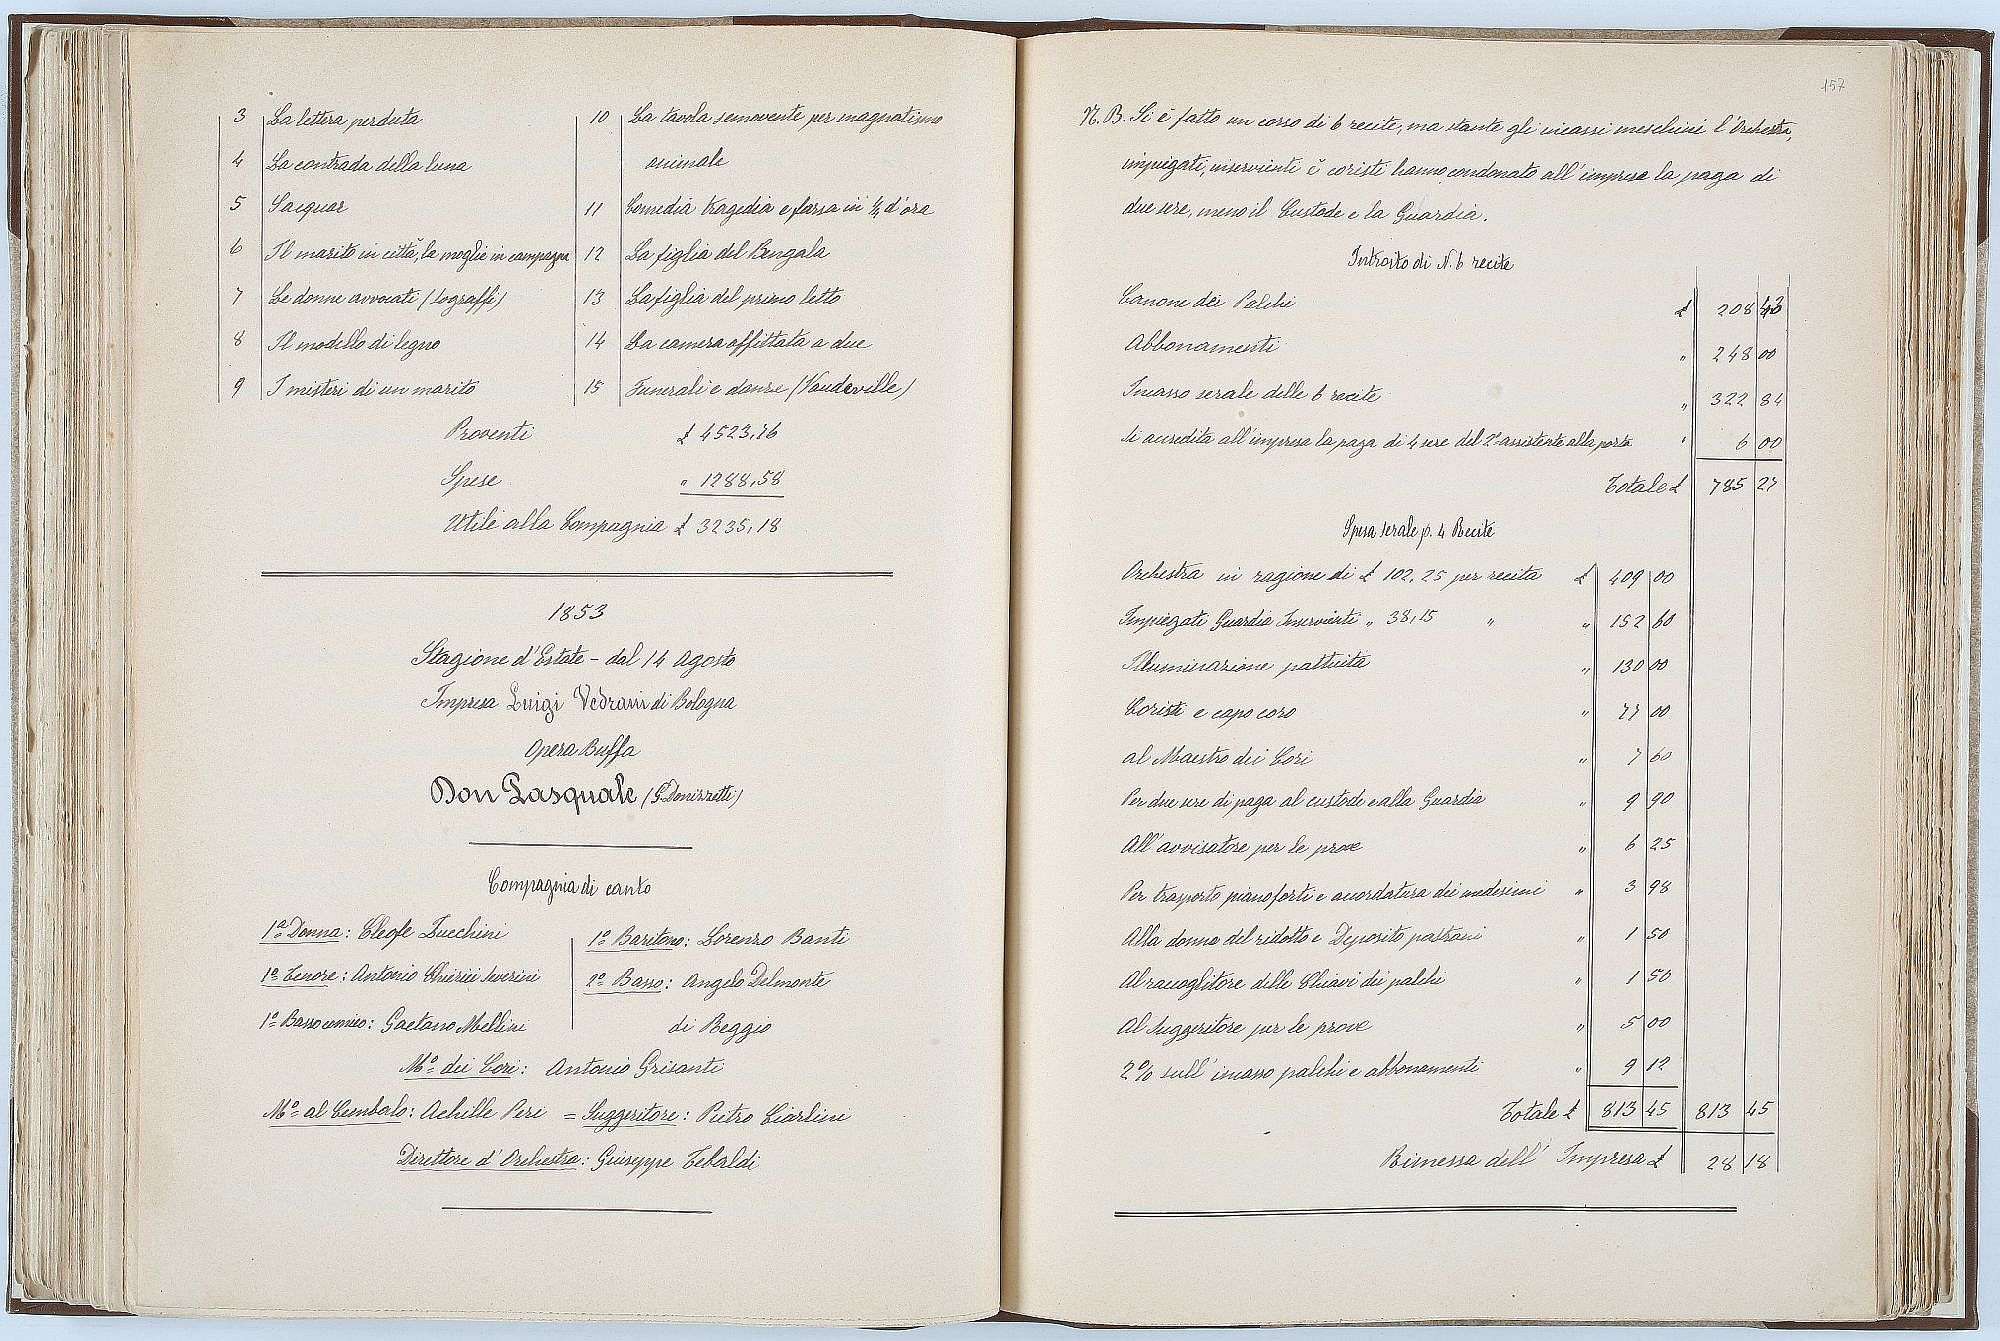 3 La lettera perduta
4 La contrada della luna
5 Sacquar
6 Il marito in città, la moglie in campagna
7 Le donne avvocati (Sograffi)
8 Il modello di legno
9 I misteri di un marito
10 La tavola semovente per magnatismo
animale
11 Comedia tragedia e farsa in ¼ d'ora
12 La figlia del Bengala
13 La figlia del primo letto
14 La camera affittata a due
15 Funerali e danze (Vaudeville)
Proventi £ 4523,76
Spese " 1288,58
Utile alla Compagnia £ 3235,18
1853
Stagione d'Estate - dal 14 Agosto
Impresa Luigi Vedrani di Bologna
Opera Buffa
Don Pasquale (G. Donizzetti)
Compagnia di canto
1ª Donna: Cleofe Zucchini
1º Tenore: Antonio Chierici Severini
1º Basso comico: Gaetano Mellini
1º Baritono: Lorenzo Banti
2º Basso: Angelo Delmonte
di Reggio
Mº dei Cori: Antonio Grisanti
Mº al Cembalo: Achille Peri = Suggeritore: Pietro Ciarlini
Direttore d'Orchestra: Giuseppe Tebaldi
157
N.B. Si è fatto un corso di 6 recite, ma stante gli incassi meschini l'Orchestra,
impiegati, inservienti è coristi hanno condonato all'impresa la paga di
due sere, meno il Custode e la Guardia.
Introito di N. 6 recite
Canone dei Palchi £ 208 43
Abbonamenti " 248 00
Incasso serale delle 6 recite " 322 84
Si accredita all'impresa la paga di 4 sere del 2º assistente alla porta " 6 00
Totale £ 785 27
Spesa serale p. 4 Recite
Orchestra in ragione di £ 102,25 per recita £ 409 00
Impiegati Guardia Inservienti " 38,15 " " 152 60
Illuminazione pattuita " 130 00
Coristi e capo coro " 77 00
al Maestro dei Cori " 7 60
Per due sere di paga al custode e alla Guardia " 9 90
All'avvisatore per le prove " 6 25
Per trasporto pianoforti e accordatura dei medesimi " 3 98
Alla donna del ridotto e Deposito pastrani " 1 50
Al raccoglitore delle Chiavi dei palchi " 1 50
Al Suggeritore per le prove " 5 00
2% sull'incasso palchi e abbonamenti " 9 12
Totale £ 813 45 813 45
Rimessa dell'Impresa £ 28 18